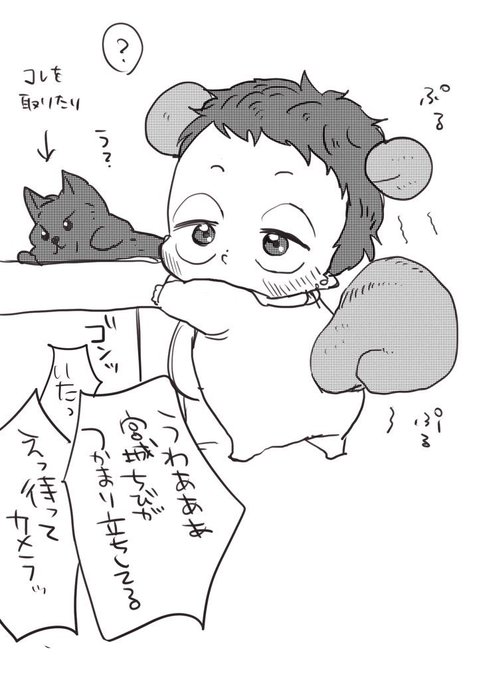 ?
コレを
取りたり
う?
ぷる
ぷる
ゴンッ
いたっ
うわあああ
宮城ちびが
つかまり立ちしてる
えっ待って
カメラッ